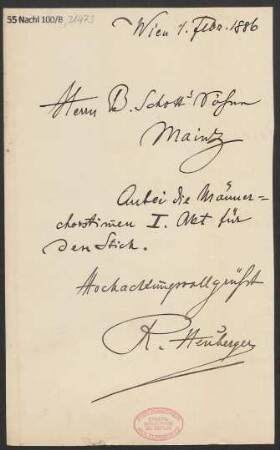 55 Nachl 100/B, 21473
Wien 7. Febr. 1886
Herrn B. Schott's Söhne
Mainz
Anbei die Männer=
chorstimmen I. Akt für
den Stich.
Hochachtungsvoll grüßt
R. Heuberger